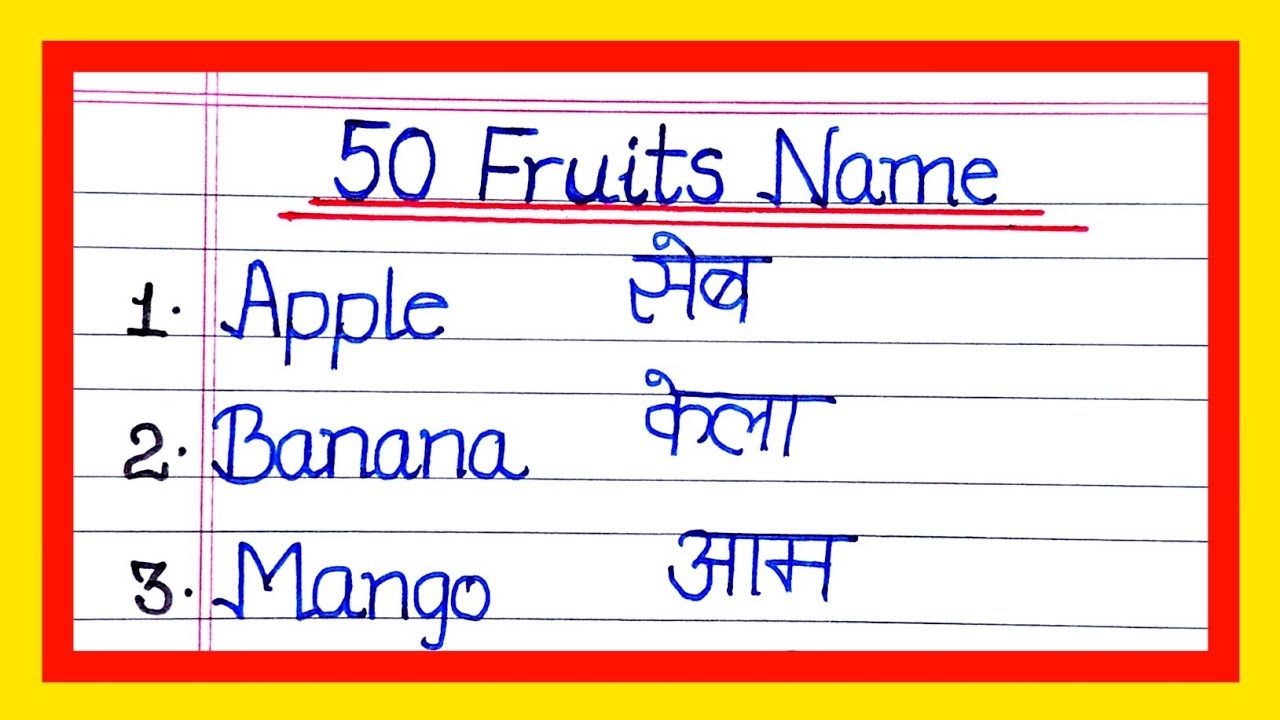 50 Fruits Name
1. Apple सेब
2. Banana केला
3. Mango आम